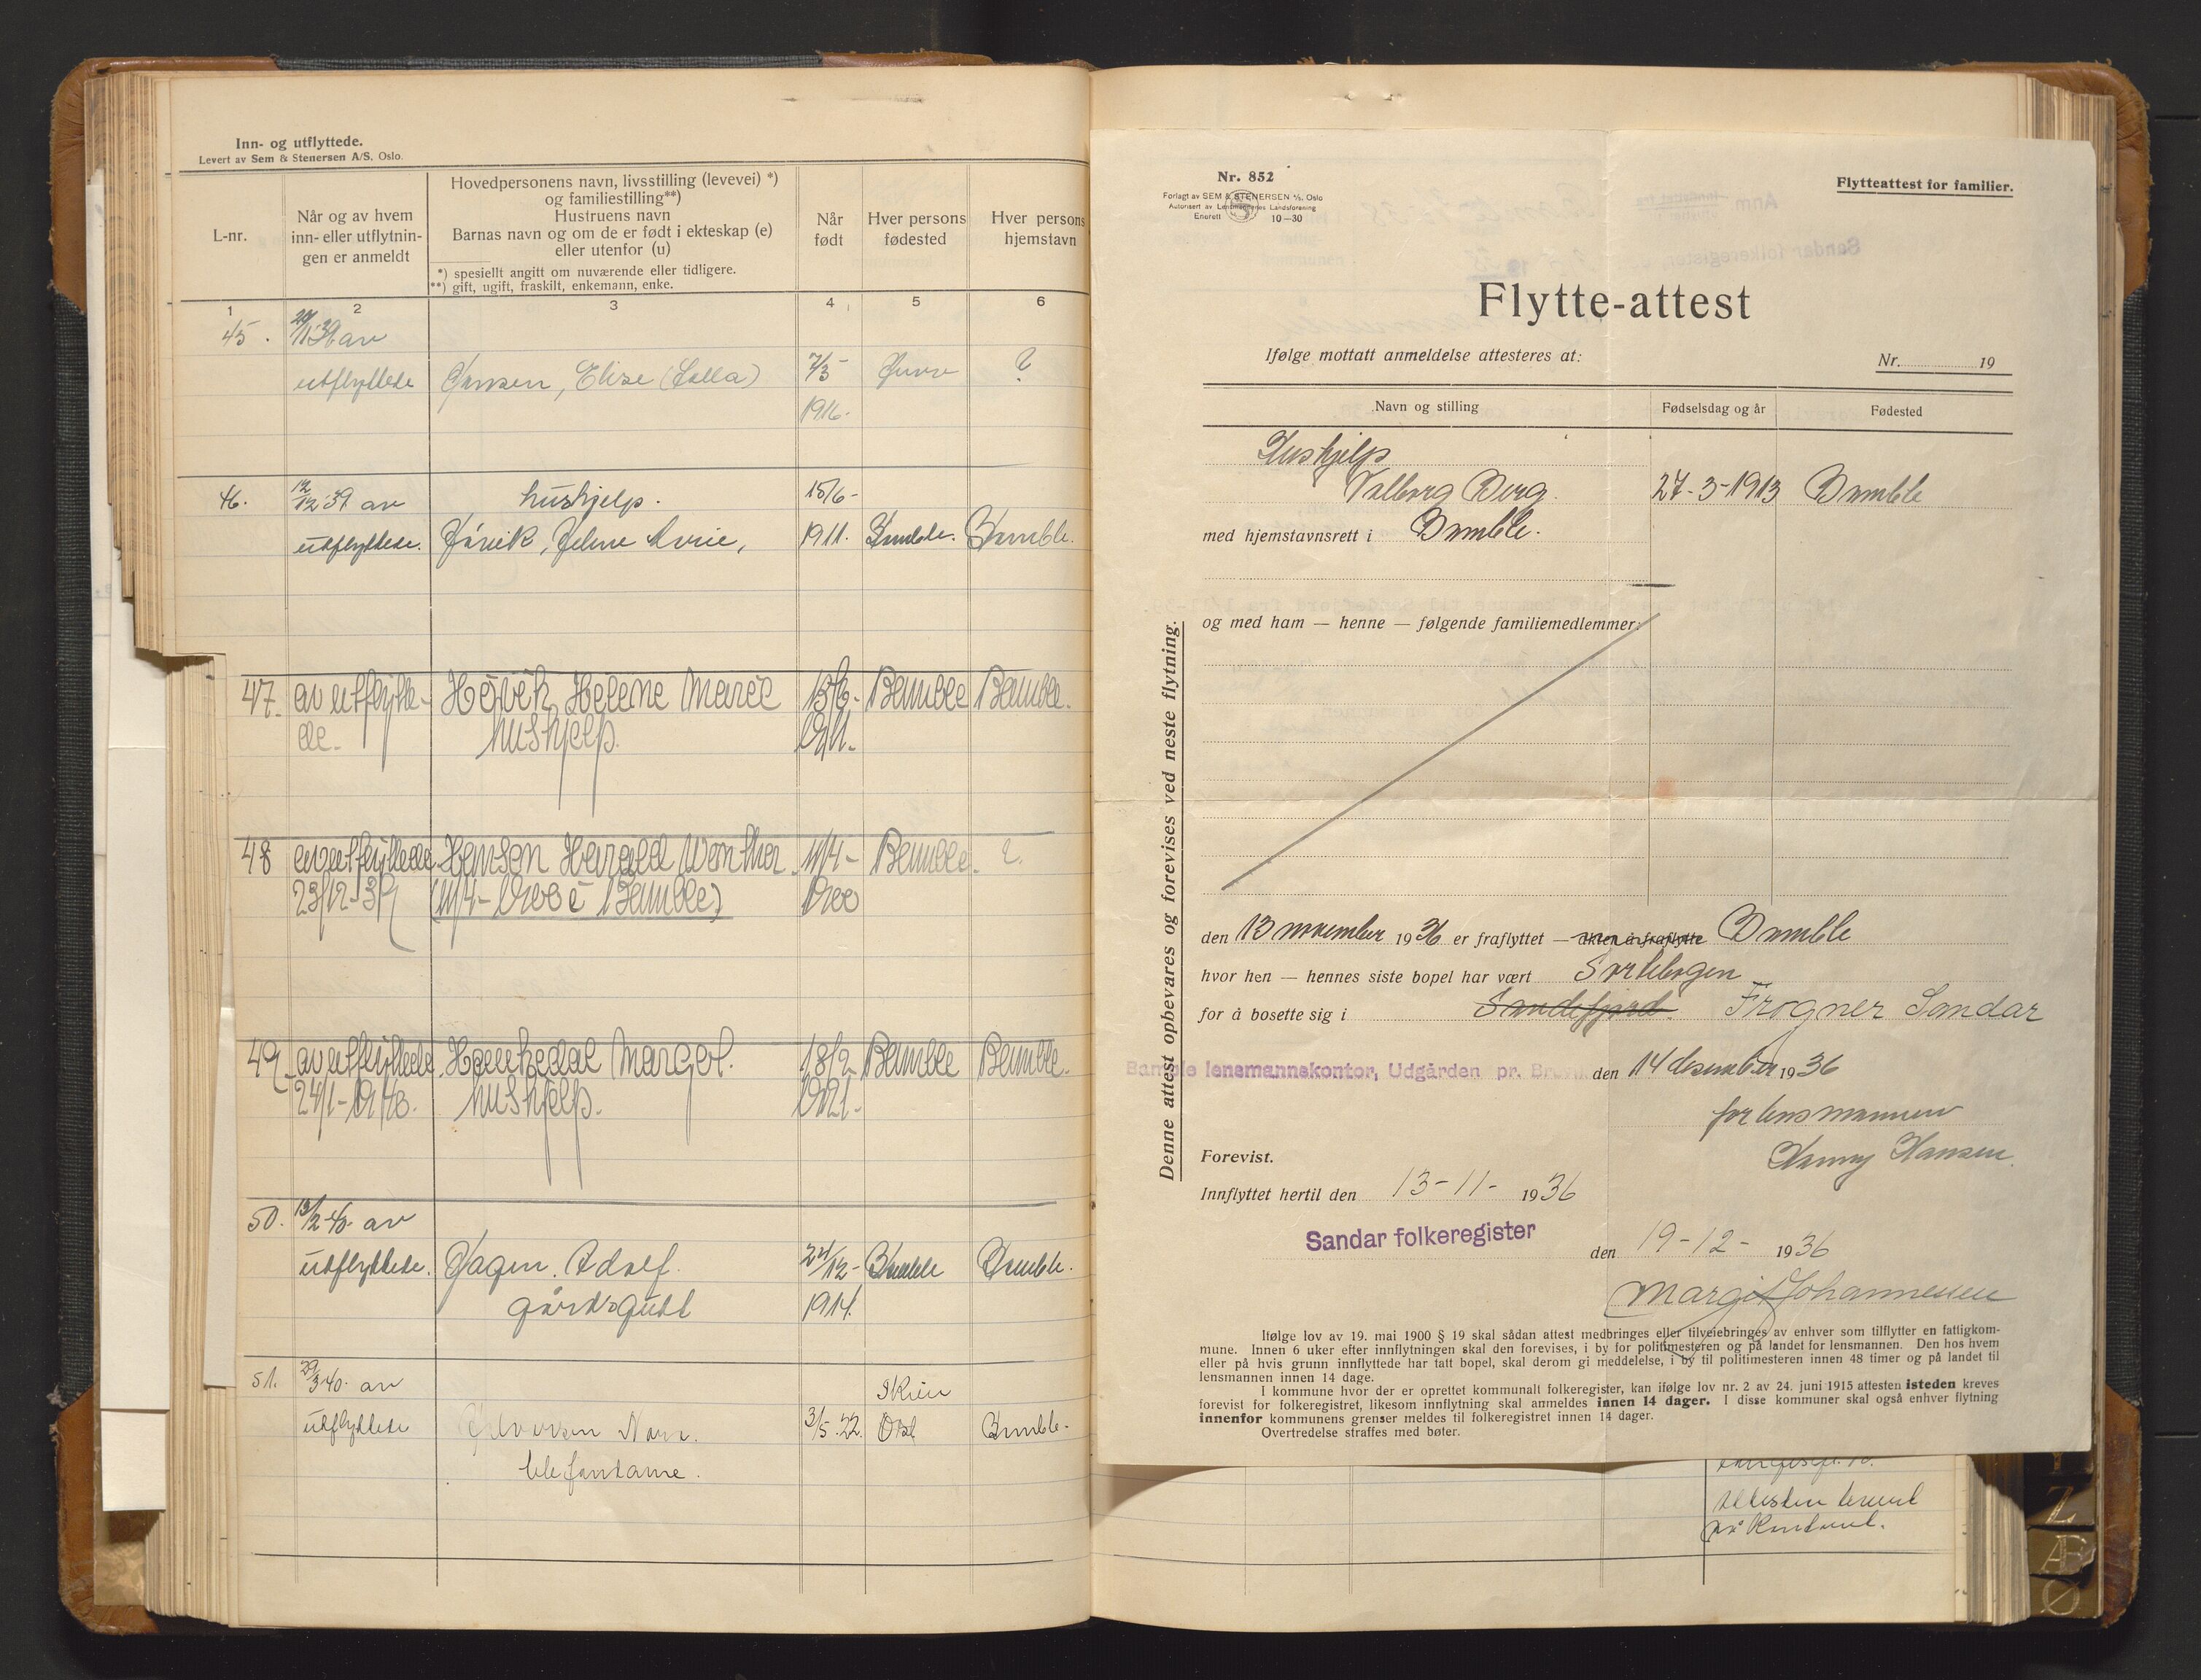 Inn- og utflyttede.
Levert av Sem & Stenersen A/S, Oslo.
L-nr.
Når og av hvem
inn- eller utflytnin-
gen er anmeldt
Hovedpersonens navn, livsstilling (levevei) *)
og familiestilling**)
Hustruens navn
Barnas navn og om de er født i ekteskap (e)
eller utenfor (u)
*) spesiellt angitt om nuværende eller tidligere.
**) gift, ugift, fraskilt, enkemann, enke.
Når
født
Hver persons
fødested
Hver persons
hjemstavn
1 2 3 4 5 6
45. av
utflyttede Jensen, Elise 7/5 ?
1916.
46. 12/12 39 av hushjelp. 15/6-
utflyttede. Høvik, Helene Marie, 1911. Bamble. Bamble.
47. av utflytte- Høvik, Helene Marie 15/6- Bamble Bamble.
de. hushjelp. 1911.
48 av utflyttede Hansen Harald 11/4- Bamble. ?
23/12-39 (11/4- 1900 i Bamble) 1900
49. av utflyttede. Margot. 18/2 Bamble Bamble.
24/1-1940. hushjelp. 1921.
50. 13/2-40. av
utflyttede. Hagen. Adolf. 24/12- Bamble Bamble.
gårdsgutt 1914.
51. 29/3 40. av Skien
utflyttede Halvorsen 3/5-22. Bamble-
telefondame.
Nr. 852
Forlagt av SEM & STENERSEN A/S, Oslo
Autorisert av Lensmennenes Landsforening
Enerett 10-30
Flytteattest for familier.
Flytte-attest
Ifølge mottatt anmeldelse attesteres at:
Nr. 19
Navn og stilling Fødselsdag og år Fødested
Hushjelp
Valborg Berg. 27-3-1913 Bamble
med hjemstavnsrett i Bamble.
og med ham — henne — følgende familiemedlemmer:
Denne attest opbevares og forevises ved neste flytning.
den 13 november 1936 er fraflyttet — akter å fraflytte Bamble
hvor hen — hennes siste bopel har vært Sortebogen
for å bosette sig i Sandefjord. Frogner Sandar
Bamble lensmannskontor, Udgården pr. den 14 desember 1936
for lensmannen
Hansen.
Forevist.
Innflyttet hertil den 13-11- 1936
Sandar folkeregister
den 19-12- 1936
Margit Johannessen
Ifølge lov av 19. mai 1900 § 19 skal sådan attest medbringes eller tilveiebringes av enhver som tilflytter en fattigkom-
mune. Innen 6 uker efter innflytningen skal den forevises, i by for politimesteren og på landet for lensmannen. Den hos hvem
eller på hvis grunn innflyttede har tatt bopel, skal derom gi meddelelse, i by til politimesteren innen 48 timer og på landet til
lensmannen innen 14 dage.
I kommune hvor der er oprettet kommunalt folkeregister, kan ifølge lov nr. 2 av 24. juni 1915 attesten isteden kreves
forevist for folkeregistret, likesom innflytning skal anmeldes innen 14 dager. I disse kommuner skal også enhver flytning
innenfor kommunens grenser meldes til folkeregistret innen 14 dager.
Overtredelse straffes med bøter.
Attesten
på
Z
Æ
Ø